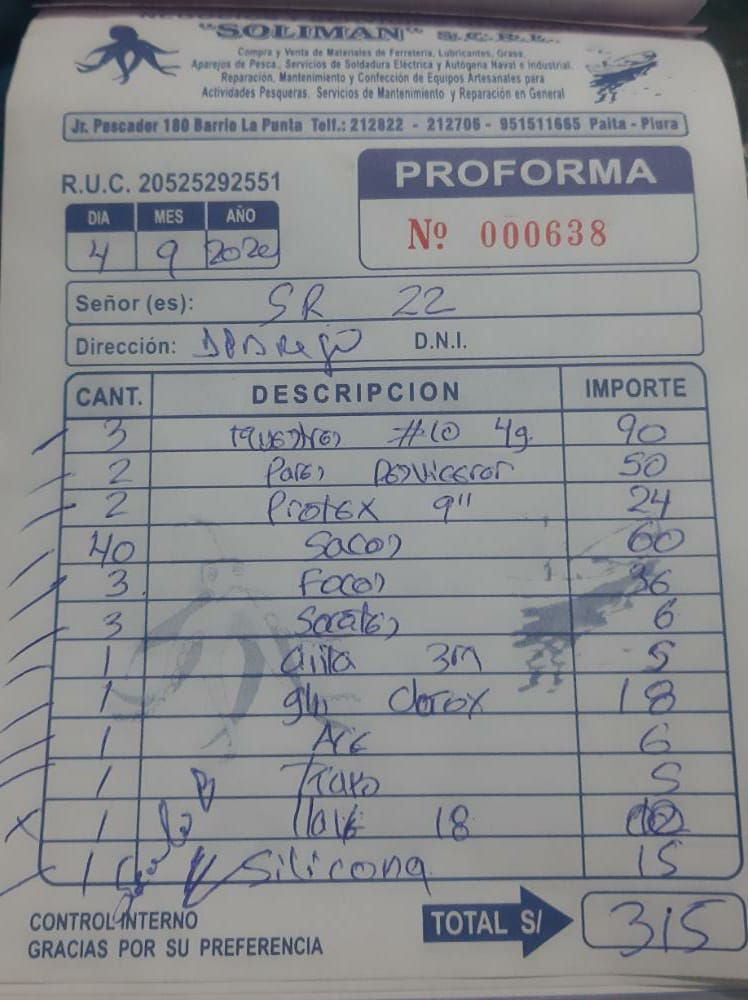 "SOLIMAN" S.C.R.L.
Compra y Venta de Materiales de Ferretería, Lubricantes, Grasa,
Aparejos de Pesca, Servicios de Soldadura Eléctrica y Autógena Naval e Industrial.
Reparación, Mantenimiento y Confección de Equipos Artesanales para
Actividades Pesqueras. Servicios de Mantenimiento y Reparación en General
Jr. Pescador 180 Barrio La Punta Telf.: 212822 - 212706 - 951511665 Paita - Piura
R.U.C. 20525292551
PROFORMA
Nº 000638
DIA MES AÑO
4 9
Señor (es): SR 22
Dirección: D.N.I.
CANT. DESCRIPCION IMPORTE
3 #10 4g. 90
2 Pares 50
2 Protex 9" 24
40 Sacos 60
3 Focos 36
3 Socates 6
1 3m 5
1 gln Clorox 18
1 Ace 6
1 5
1 llave 18
1 Silicona 15
CONTROL INTERNO
GRACIAS POR SU PREFERENCIA
TOTAL S/ 315